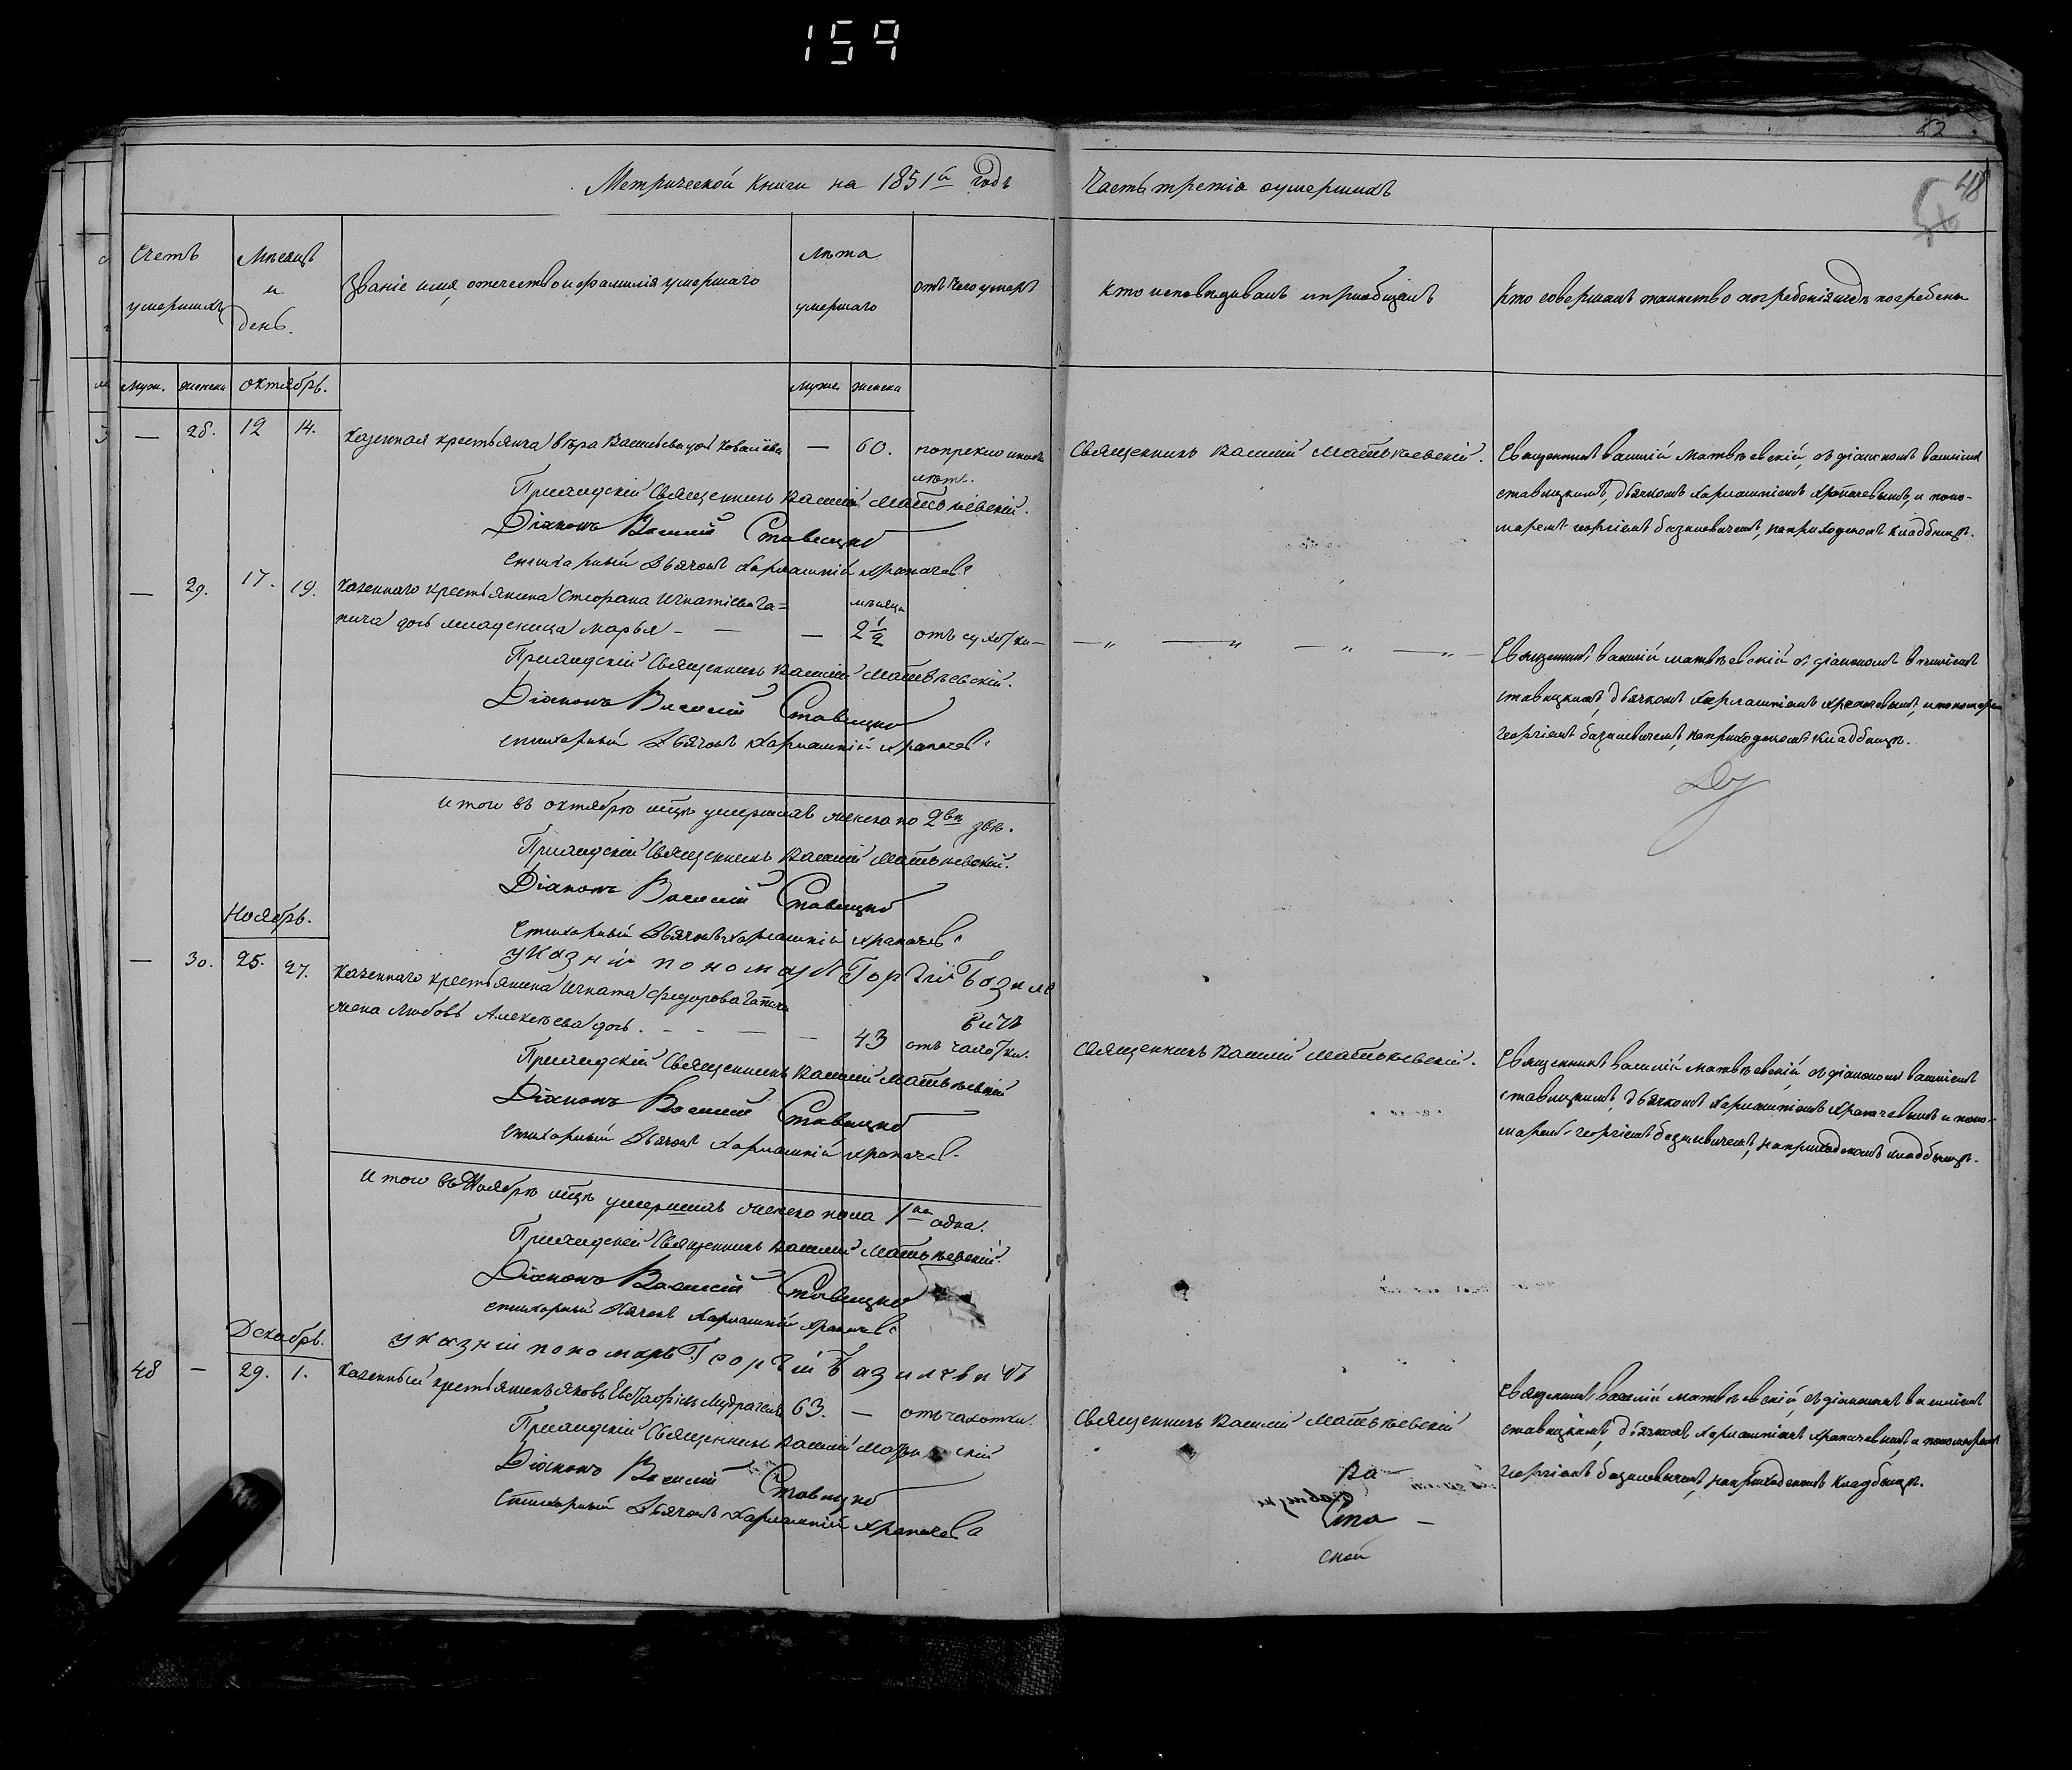 159
52
48
Метрической Книги на 1851й годъ
Часть третія оумершихъ
Счетъ умершихъ
Мѣсяцъ и день.
Званіе имя, отечество и фамилія умершаго
Лѣта умершаго
отъ чего умеръ
Кто исповѣдывалъ и пріобщалъ
Кто совершалъ таинство погребенія и гдѣ погребены
Муж. женска октябрь. мужс. женска
— 28. 12 14. Казенная крестьянка Вѣра Васильева доч — 60.
Священникъ Василій Матвѣевскій.
Священникъ Василій Матвѣевскій, съ діакономъ Василіемъ
ставицкимъ, дьячкомъ Харлампіемъ Храпачевымъ, и поно-
маремъ георгіемъ базилевичемъ, наприходскомъ кладбищѣ.
лѣтъ.
Приходскій Священникъ Василій Матвѣевскій.
Діаконъ Василій Ставицкій
Стихарный Дьячокъ Харлампій Храпачевъ
— 29. 17. 19. Казеннаго крестьянина Стефана Игнатіева Га=
пича дочь младеница Марья — — мѣсяца 2 1/2 отъ сухотки —
— „ — „ — „ — „ —
Священникъ Василій Матвѣевскій съ діакономъ Василіемъ
ставицкимъ, дьячкомъ Харлампіемъ Храпачевымъ, и пономаремъ
георгіемъ базилевичемъ, наприходскомъ кладбищѣ.
Приходскій Священникъ Василій Матвѣевскій.
Діаконъ Василій Ставицкій
стихарный Дьячокъ Харлампій Храпачевъ
Итого въ октябрѣ мцѣ умершихъ женска по 2вѣ двѣ.
Приходскій Священникъ Василій Матвѣевскій.
Діаконъ Василій Ставицкій
Стихарный Дьячокъ Харлампій Храпачевъ
указній пономарь Георгій Базиле
вичъ
Ноябрь.
— 30. 25. 27. Казеннаго крестьянина Игната Федорова Гапича
жена Любовь Алексѣева дочь. — — — 43 отъ чахотки.
Священникъ Василій Матвѣевскій.
Священникъ Василій Матвѣевскій, съ діакономъ Василіемъ
ставицкимъ, дьячкомъ Харлампіемъ Храпачевымъ и поно-
маремъ георгіемъ базилевичемъ, наприходскомъ кладбищѣ.
Приходскій Священникъ Василій Матвѣевскій
Діаконъ Василій Ставицкій
Стихарный Дьячокъ Харлампій Храпачевъ
Итого въ Ноябрѣ мцѣ умершихъ женска пола 1на одна.
Приходскій Священникъ Василій Матвѣевскій.
Діаконъ Василій Ставицкій
стихарный Дячокъ Харлампій Храпачевъ
указній пономарь Георгій Базилевичъ
Декабрь.
48 — 29. 1. Казенный крестьянинъ Яковъ 63. — отъ чахотки.
Священникъ Василій Матвѣевскій
Священникъ Василій Матвѣевскій, съ діакономъ Василіемъ
ставицкимъ, дьячкомъ Харлампіемъ Храпачевымъ, и пономаремъ
георгіемъ базилевичемъ, наприходскомъ кладбищѣ.
Приходскій Священникъ Василій
Діаконъ Василій Ставицкій
Стихарный Дьячокъ Харлампій Храпачевъ
Ва
Ста —
ской